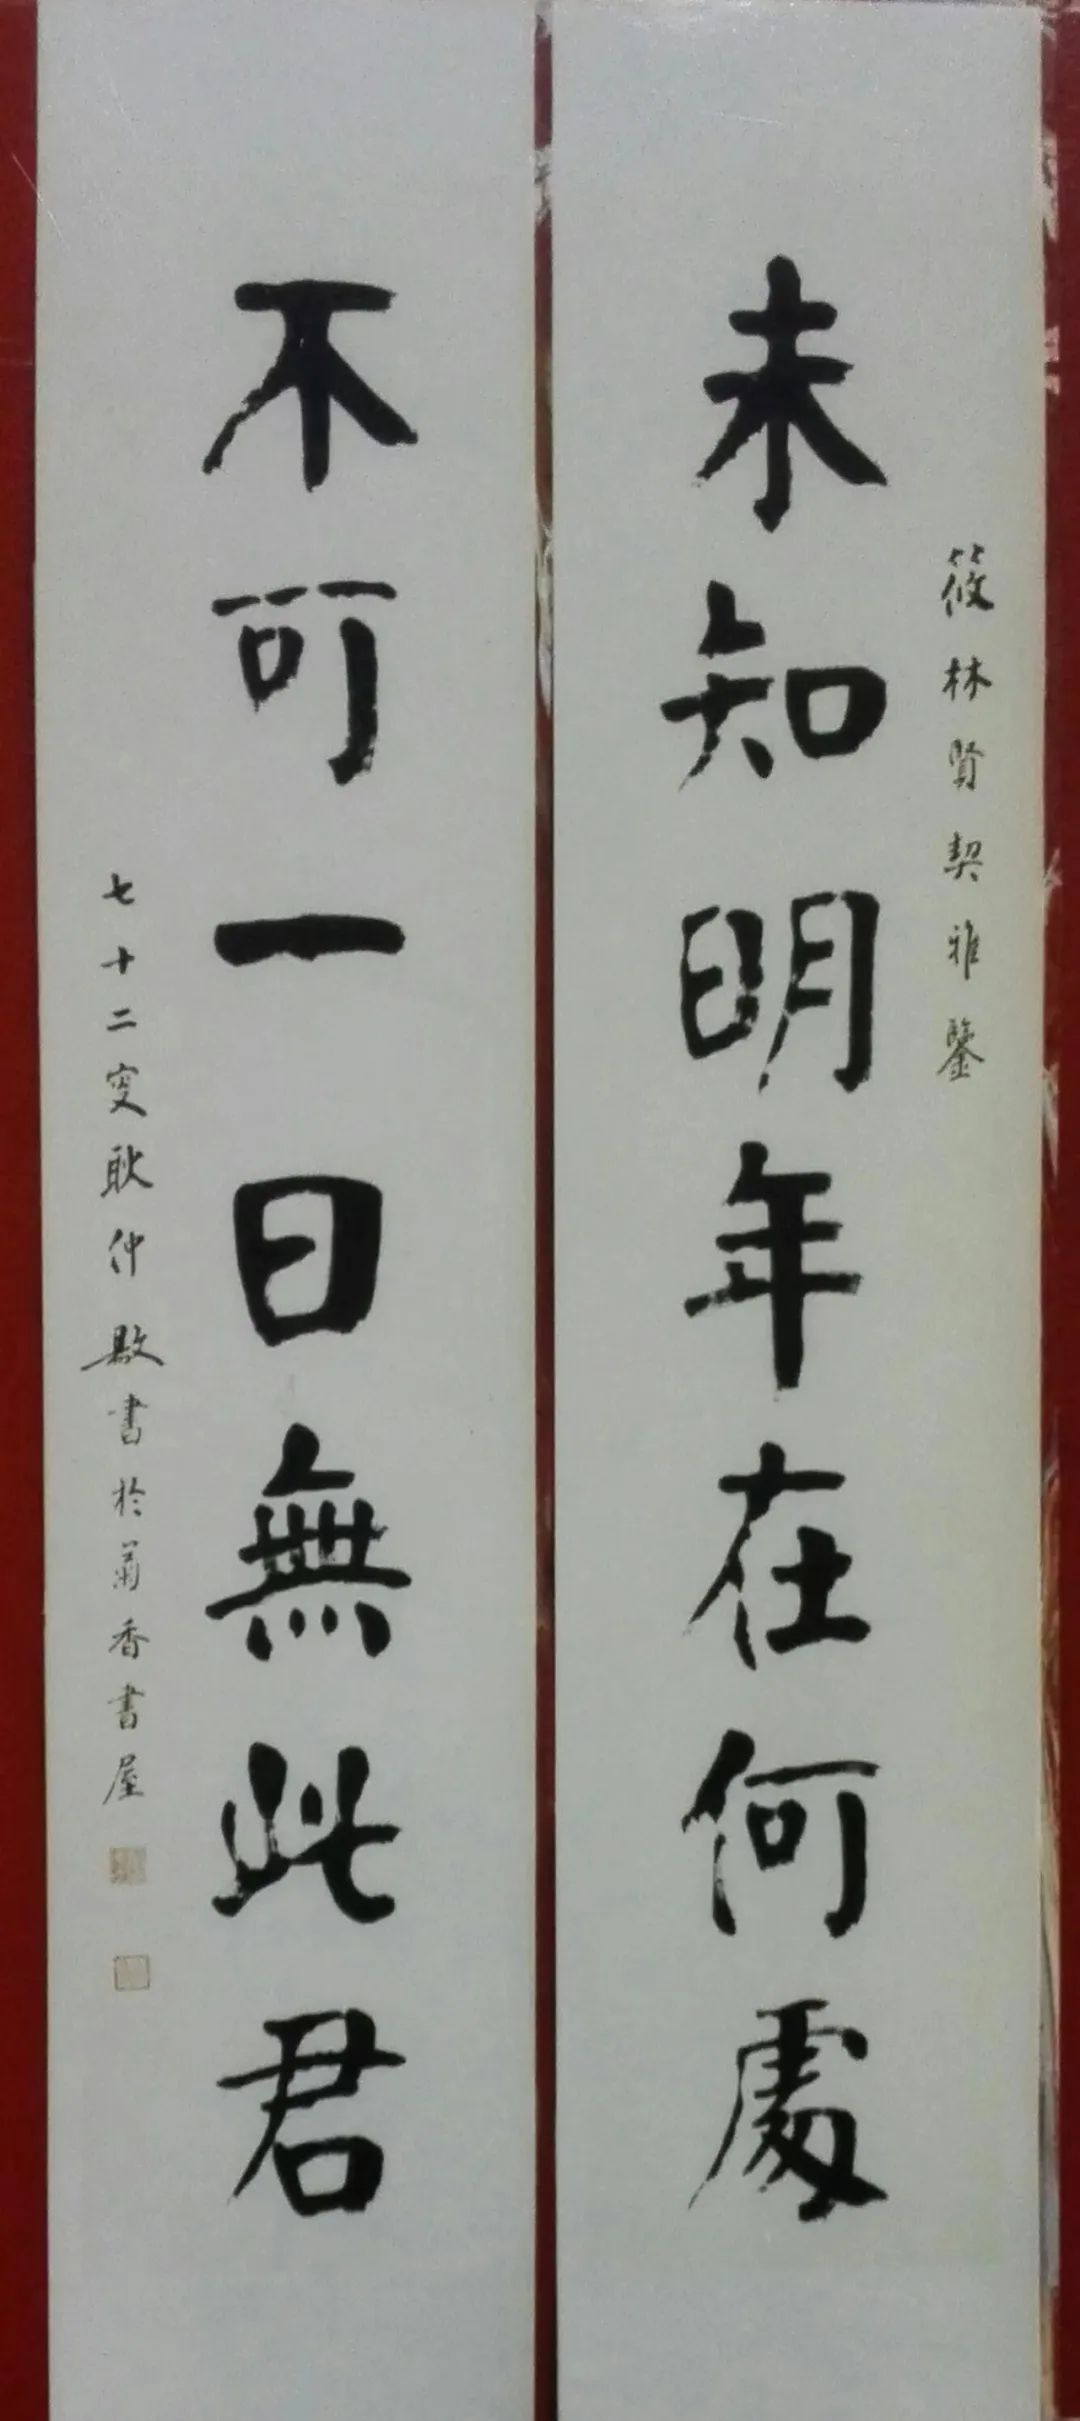 筱林賢契雅鑒
未知明年在何處
不可一日無此君
七十二叟耿仲敭書於菊香書屋